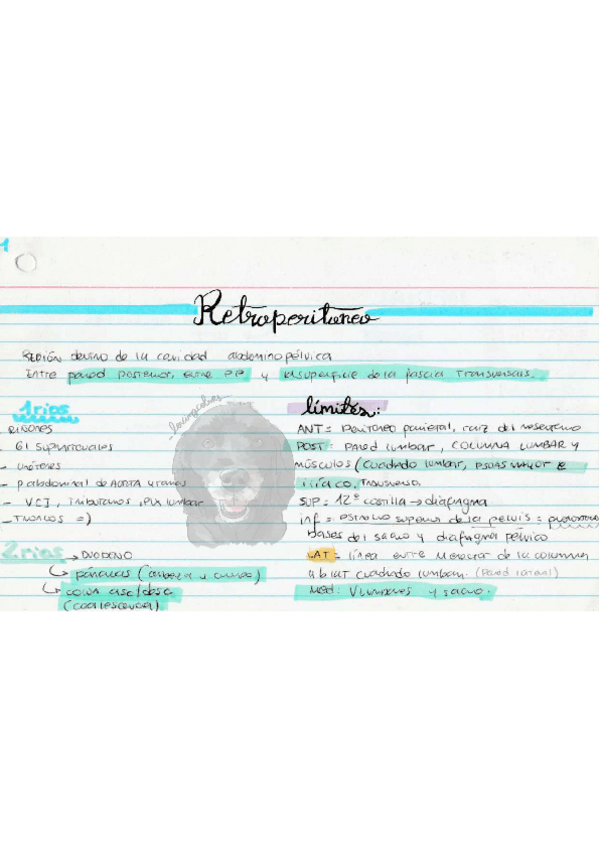 1
Retroperitoneo
REGIÓN dentro de la cavidad abdominopélvica
Entre pared posterior, entre PP y la superficie de la fascia transversalis.
1rios
RIÑONES
- Gl suprarrenales
- uréteres
- P abdominal de AORTA y ramas
- VCI, Tributarias, plx lumbar
- TRONCOS =)
2rios → DUODENO
↳ páncreas (cabeza y cuerpo)
↳ colon asc/desc
(coalescencia)
límites:
ANT = peritoneo parietal, raíz del mesenterio
POST = Pared lumbar, COLUMNA LUMBAR y
músculos (cuadrado lumbar, PSOAS MAYOR e
ilíaco, transverso.
SUP = 12ª costilla → diafragma
inf = estrecho superior de la pelvis = promontorio
bases del sacro y diafragma pélvico
LAT = línea entre de la columna
a b lat cuadrado lumbar. (pared lateral)
Med: V lumbares y sacro.